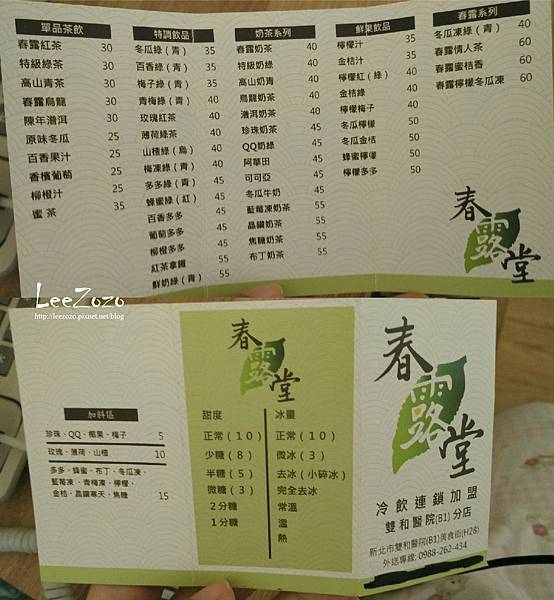 單品茶飲
春露紅茶 30
特級綠茶 30
高山青茶 30
春露烏龍 30
陳年潽洱 30
原味冬瓜 25
百香果汁 25
香檳葡萄 25
柳橙汁 25
蜜茶 35
特調飲品
冬瓜綠(青) 35
百香綠(青) 35
梅子綠(青) 35
青梅綠(青) 40
玫瑰紅茶 40
薄荷綠茶 40
山楂綠(烏) 40
梅凍綠(青) 40
多多綠(青) 45
蜂蜜綠(紅) 45
百香多多 45
葡萄多多 45
柳橙多多 45
紅茶拿鐵 55
鮮奶綠(青) 55
奶茶系列
春露奶茶 40
特級奶綠 40
高山奶青 40
烏龍奶茶 40
潽洱奶茶 40
珍珠奶茶 45
QQ奶綠 45
阿華田 45
可可亞 45
冬瓜牛奶 45
藍莓凍奶茶 55
晶鑽奶茶 55
焦糖奶茶 55
布丁奶茶 55
鮮果飲品
檸檬汁 35
金桔汁 35
檸檬紅(綠) 40
金桔綠 40
檸檬梅子 40
冬瓜檸檬 50
冬瓜金桔 50
蜂蜜檸檬 50
檸檬多多 50
春露系列
冬瓜凍綠(青) 40
春露情人茶 60
春露蜜桔香 60
春露檸檬冬瓜凍 60
春露堂
LeeZozo
http://leezozo.pixnet.net/blog
加料區
珍珠、QQ、椰果、梅子 5
玫瑰、薄荷、山楂 10
多多、蜂蜜、布丁、冬瓜凍、
藍莓凍、青梅凍、檸檬、
金桔、晶鑽寒天、焦糖 15
春露堂
甜度
正常(10)
少糖(8)
半糖(5)
微糖(3)
2分糖
1分糖
冰量
正常(10)
微冰(3)
去冰(小碎冰)
完全去冰
常溫
溫
熱
春露堂
冷飲連鎖加盟
雙和醫院(B1)分店
新北市雙和醫院(B1)美食街(H28)
外送專線: 0988-262-434